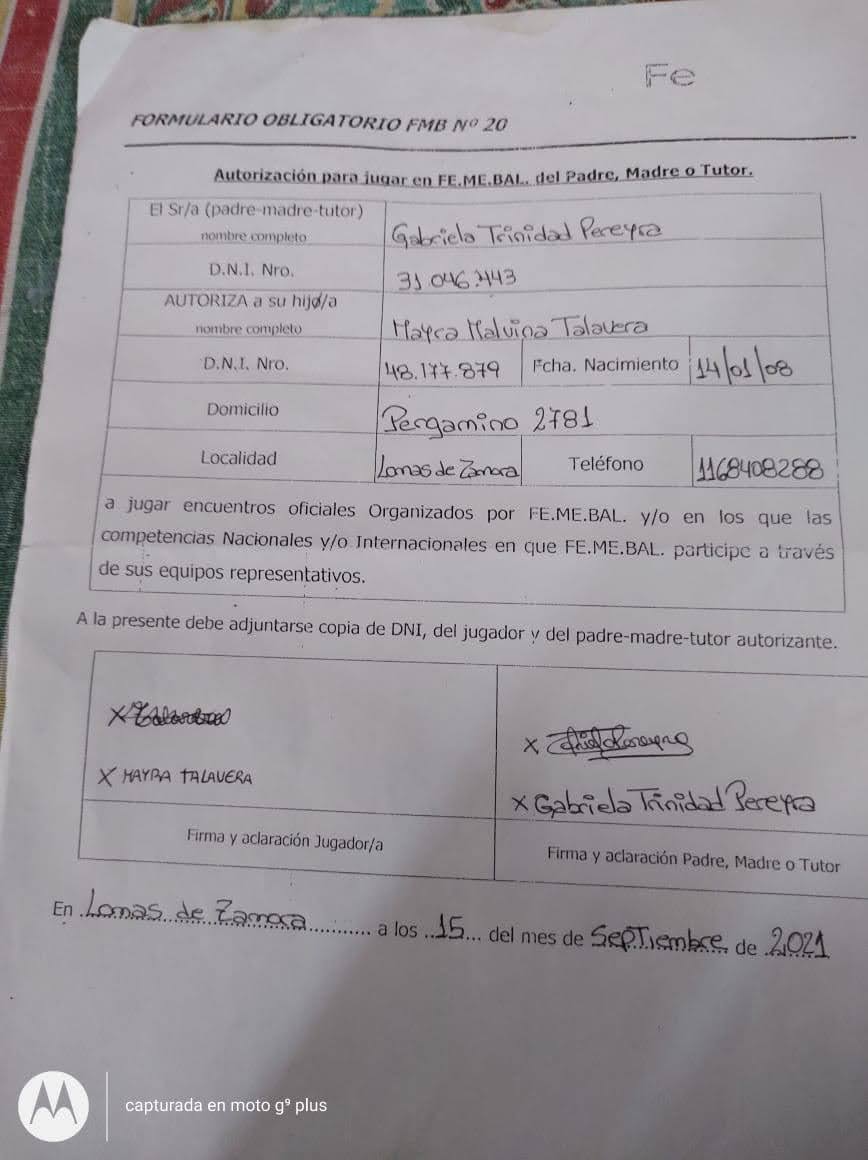 Fe
FORMULARIO OBLIGATORIO FMB Nº 20
Autorización para jugar en FE.ME.BAL. del Padre, Madre o Tutor.
El Sr/a (padre-madre-tutor)
nombre completo
Gabriela Trinidad Pereyra
D.N.I. Nro.
31.046.443
AUTORIZA a su hijo/a
nombre completo
Mayra Malvina Talavera
D.N.I. Nro.
48.177.879
Fcha. Nacimiento
14/01/08
Domicilio
Pergamino 2781
Localidad
Lomas de Zamora
Teléfono
1168408288
a jugar encuentros oficiales Organizados por FE.ME.BAL. y/o en los que las
competencias Nacionales y/o Internacionales en que FE.ME.BAL. participe a través
de sus equipos representativos.
A la presente debe adjuntarse copia de DNI, del jugador y del padre-madre-tutor autorizante.
X
X
X MAYRA TALAVERA
X Gabriela Trinidad Pereyra
Firma y aclaración Jugador/a
Firma y aclaración Padre, Madre o Tutor
En Lomas de Zamora a los 15 del mes de Septiembre de 2021
capturada en moto g⁹ plus